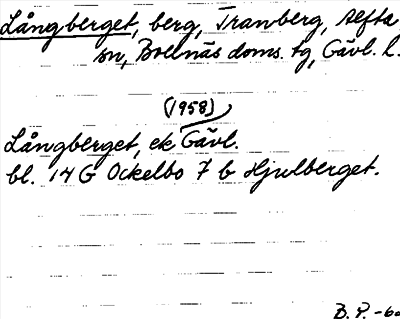 Långberget, berg, Tranberg, Alfta
sn, Bollnäs doms. tg, Gävl. l.
(1958)
Långberget, ek Gävl.
bl. 14 G Ockelbo 7 b Hjulberget.
B. P. -60